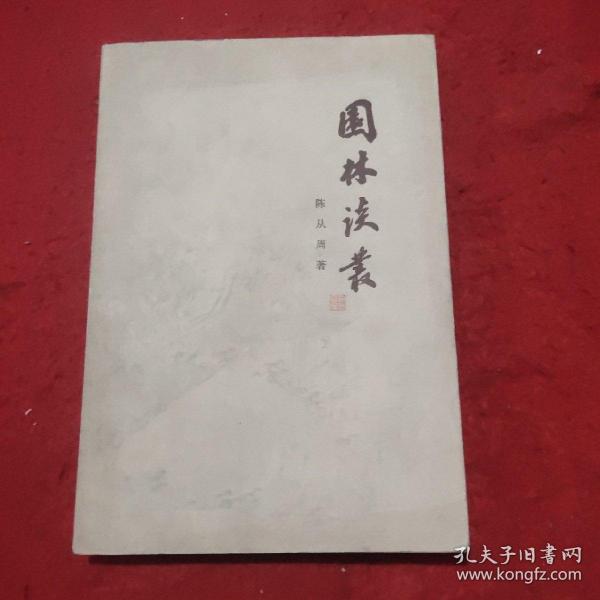 园林谈叢
陈从周著
孔夫子旧書网
www.kongfz.com